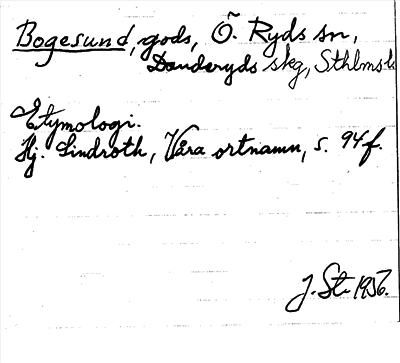 Bogesund, gods, Ö. Ryds sn,
Danderyds skg, Sthlms l.
Etymologi.
Hj. Lindroth, Våra ortnamn, s. 94 f.
J. St. 1956.